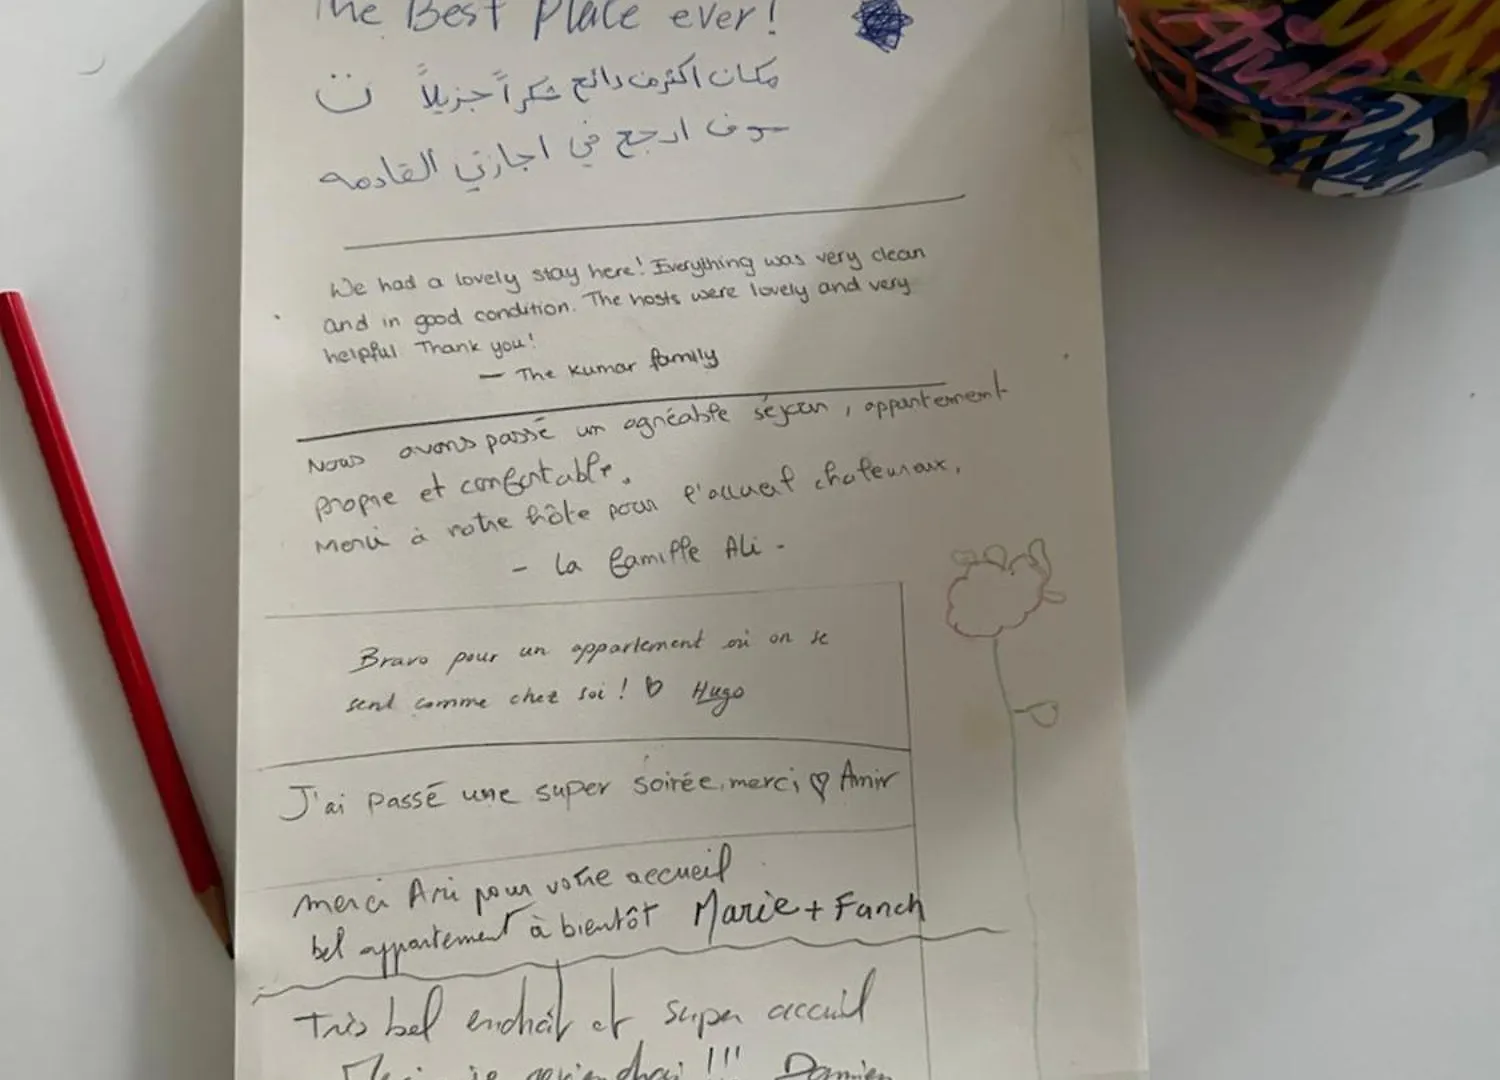 The Best Place ever!
مكان اكثر من رائع شكراً جزيلاً
سوف ارجع في اجازتي القادمه
We had a lovely stay here! Everything was very clean
and in good condition. The hosts were lovely and very
helpful Thank you!
— The Kumar family
Nous avons passé un agréable séjour, appartement
propre et confortable.
Merci à notre hôte pour l'accueil chaleureux.
- La famille Ali -
Bravo pour un appartement où on se
sent comme chez soi ! ♡ Hugo
J'ai passé une super soirée, merci ♡ Amir
merci Ari pour votre accueil
bel appartement à bientôt Marie + Fanch
Très bel endroit et super accueil
je reviendrai !!! Damien